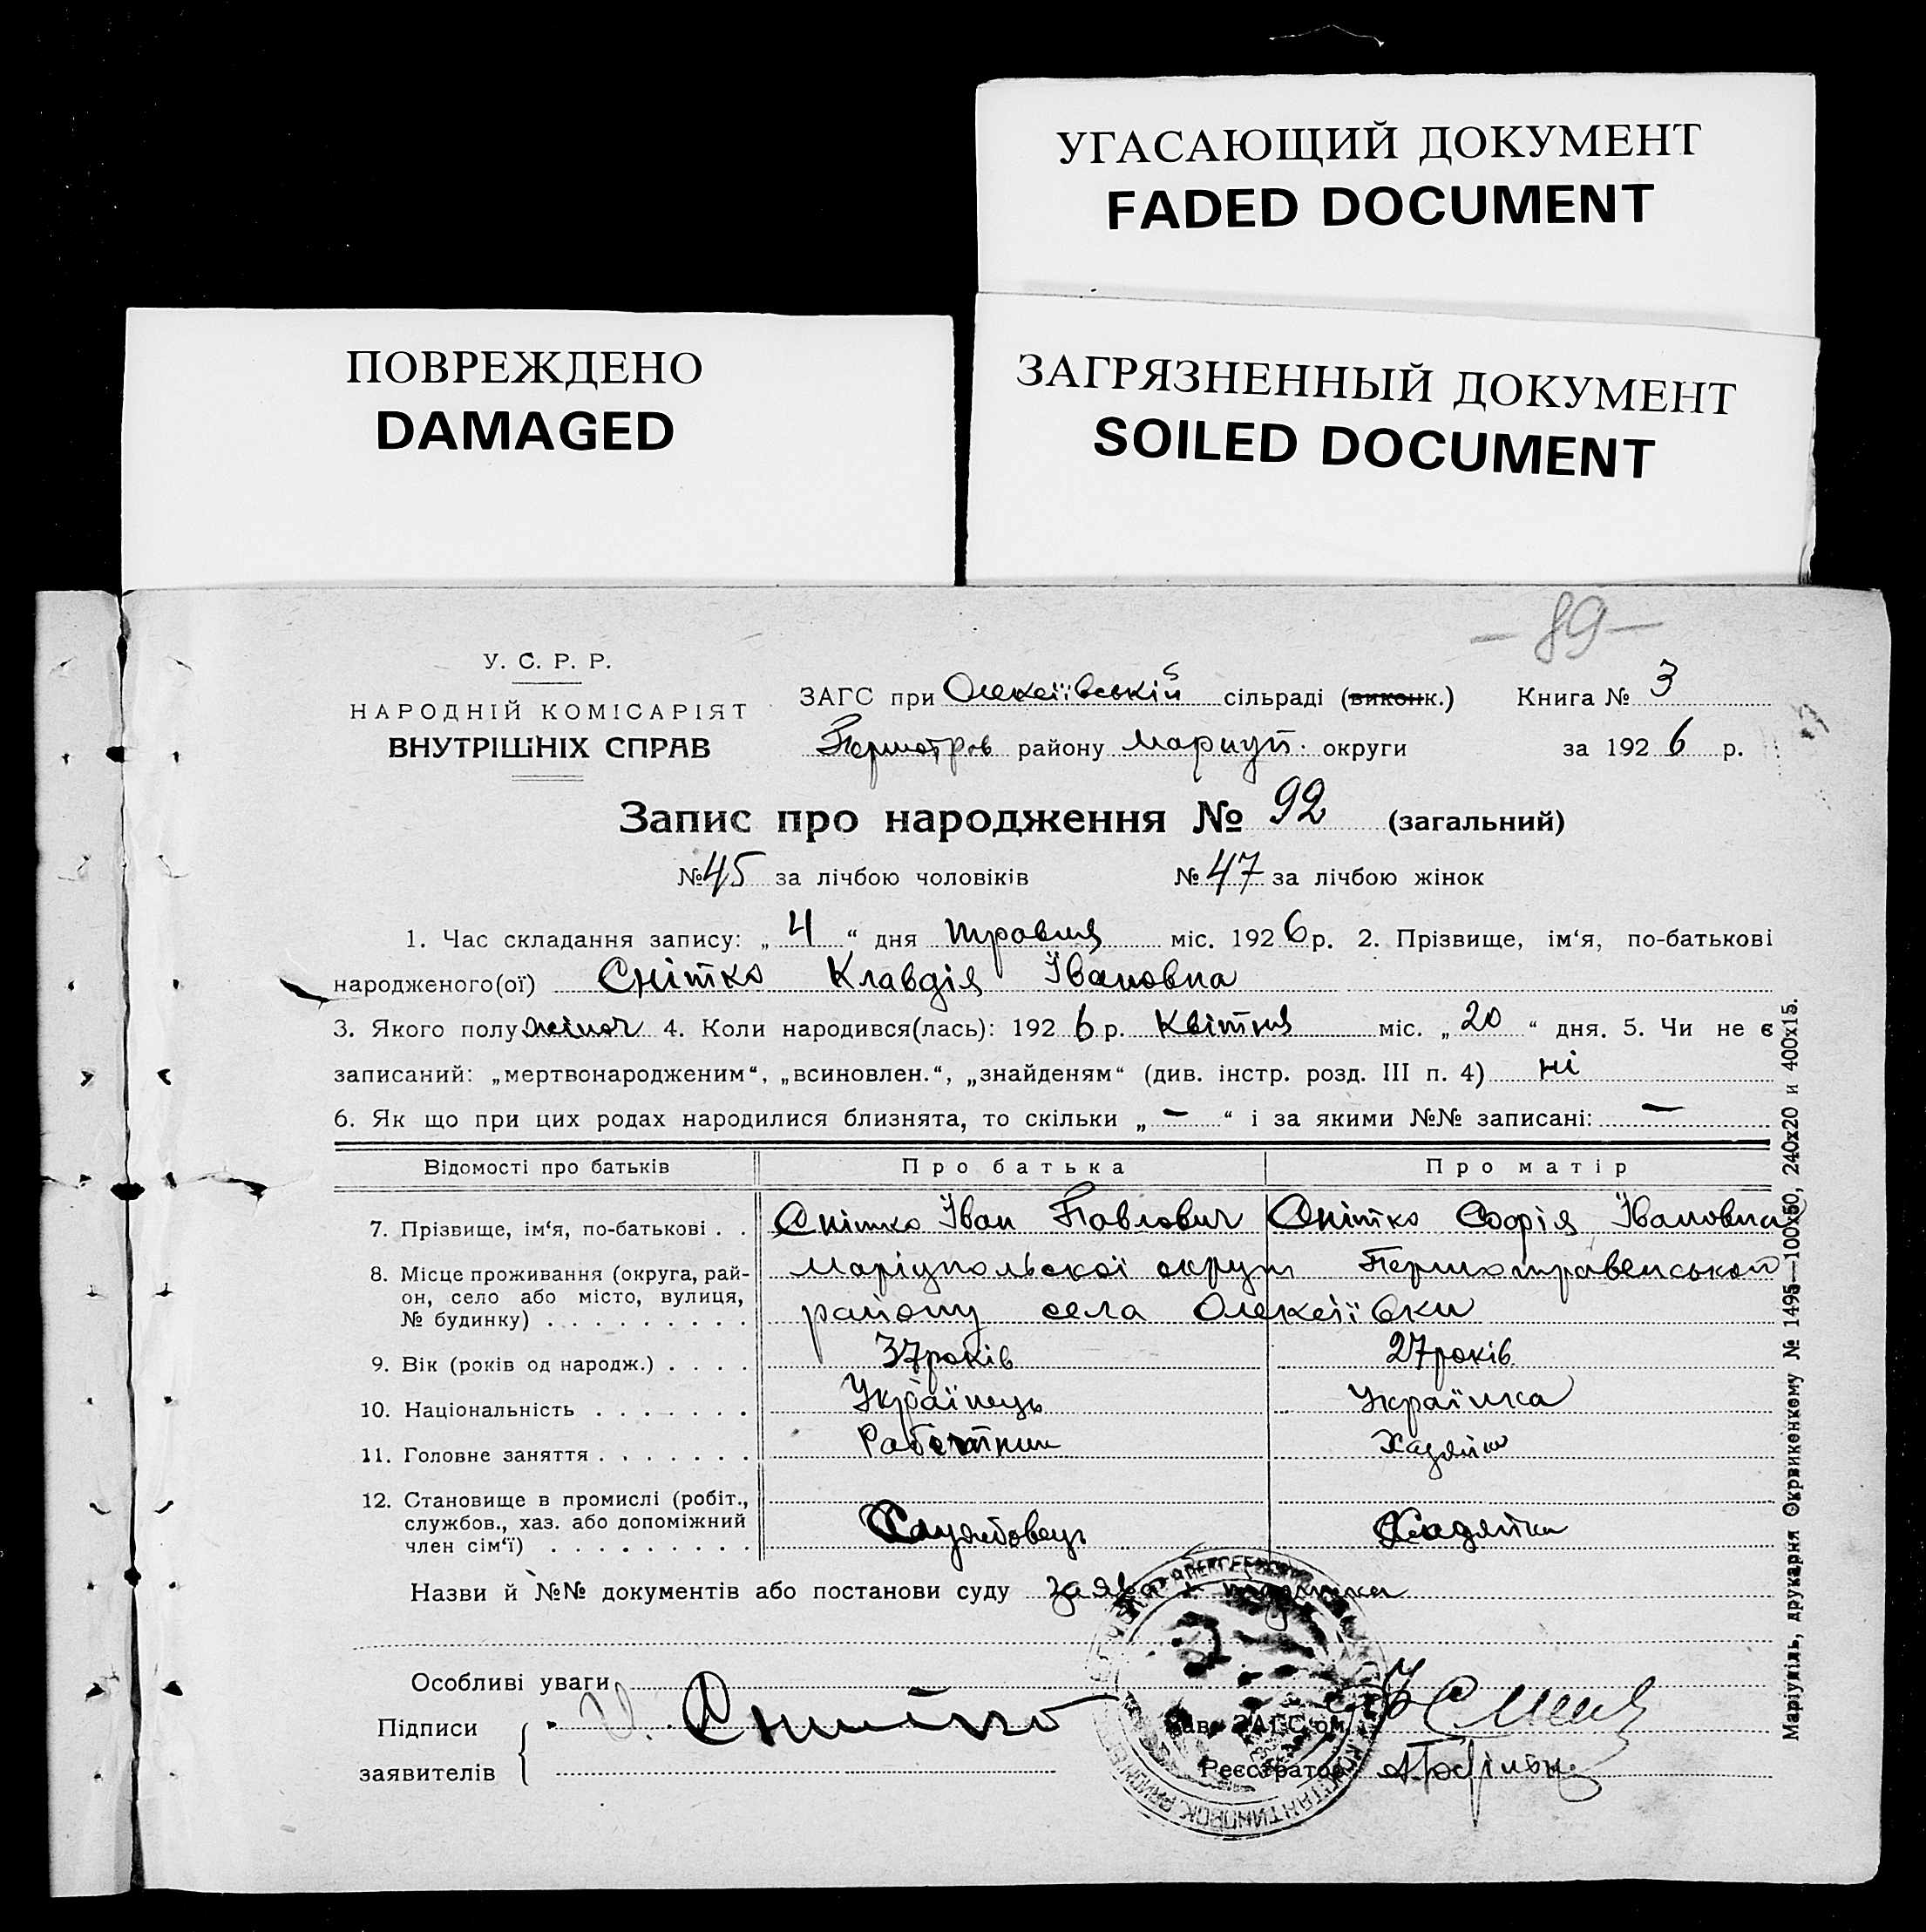 УГАСАЮЩИЙ ДОКУМЕНТ
FADED DOCUMENT
ЗАГРЯЗНЕННЫЙ ДОКУМЕНТ
SOILED DOCUMENT
ПОВРЕЖДЕНО
DAMAGED
— 89 —
У. С. Р. Р.
НАРОДНІЙ КОМІСАРІЯТ
ВНУТРІШНІХ СПРАВ
ЗАГС при Олексіївській сільраді (виконк.) Книга № 3
Першотрав району Маріуп. округи за 1926 р.
Запис про народження № 92 (загальний)
№ 45 за лічбою чоловіків № 47 за лічбою жінок
1. Час складання запису: „ 4 “ дня травня міс. 1926 р. 2. Прізвище, ім‘я, по-батькові
народженого(ої) Снітко Клавдія Івановна
3. Якого полу жіноч 4. Коли народився(лась): 1926 р. Квітня міс. „ 20 “ дня. 5. Чи не є
записаний: „мертвонародженим“, „всиновлен.“, „знайденям“ (див. інстр. розд. III п. 4) ні
6. Як що при цих родах народилися близнята, то скільки „ — “ і за якими №№ записані: —
Відомості про батьків Про батька Про матір
7. Прізвище, ім‘я, по-батькові . . Снітко Іван Павлович Снітко Софія Івановна
8. Місце проживання (округа, рай-
он, село або місто, вулиця,
№ будинку) . . . . . . . . .
Маріупольскої округи Першотравенського
району села Олексіївки
9. Вік (років од народж.) . . . . 37 років 27 років
10. Національність . . . . . . . Українець Українка
11. Головне заняття . . . . . . . Работник Хадяйка
12. Становище в промислі (робіт.,
службов., хаз. або допоміжний
член сім‘ї) . . . . . . . . .
Службовець Хадяйка
Назви й №№ документів або постанови суду заява
Особливі уваги
Підписи
заявителів
И. Снитко
Зав. ЗАГС‘ом
Реєстратор
Маріупіль, друкарня Окрвиконкому № 1495—100х50, 240х20 и 400х15.